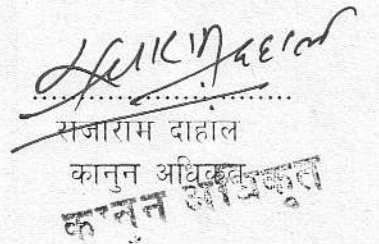 राजाराम दाहाल
कानुन अधिकृत
कानुन अधिकृत